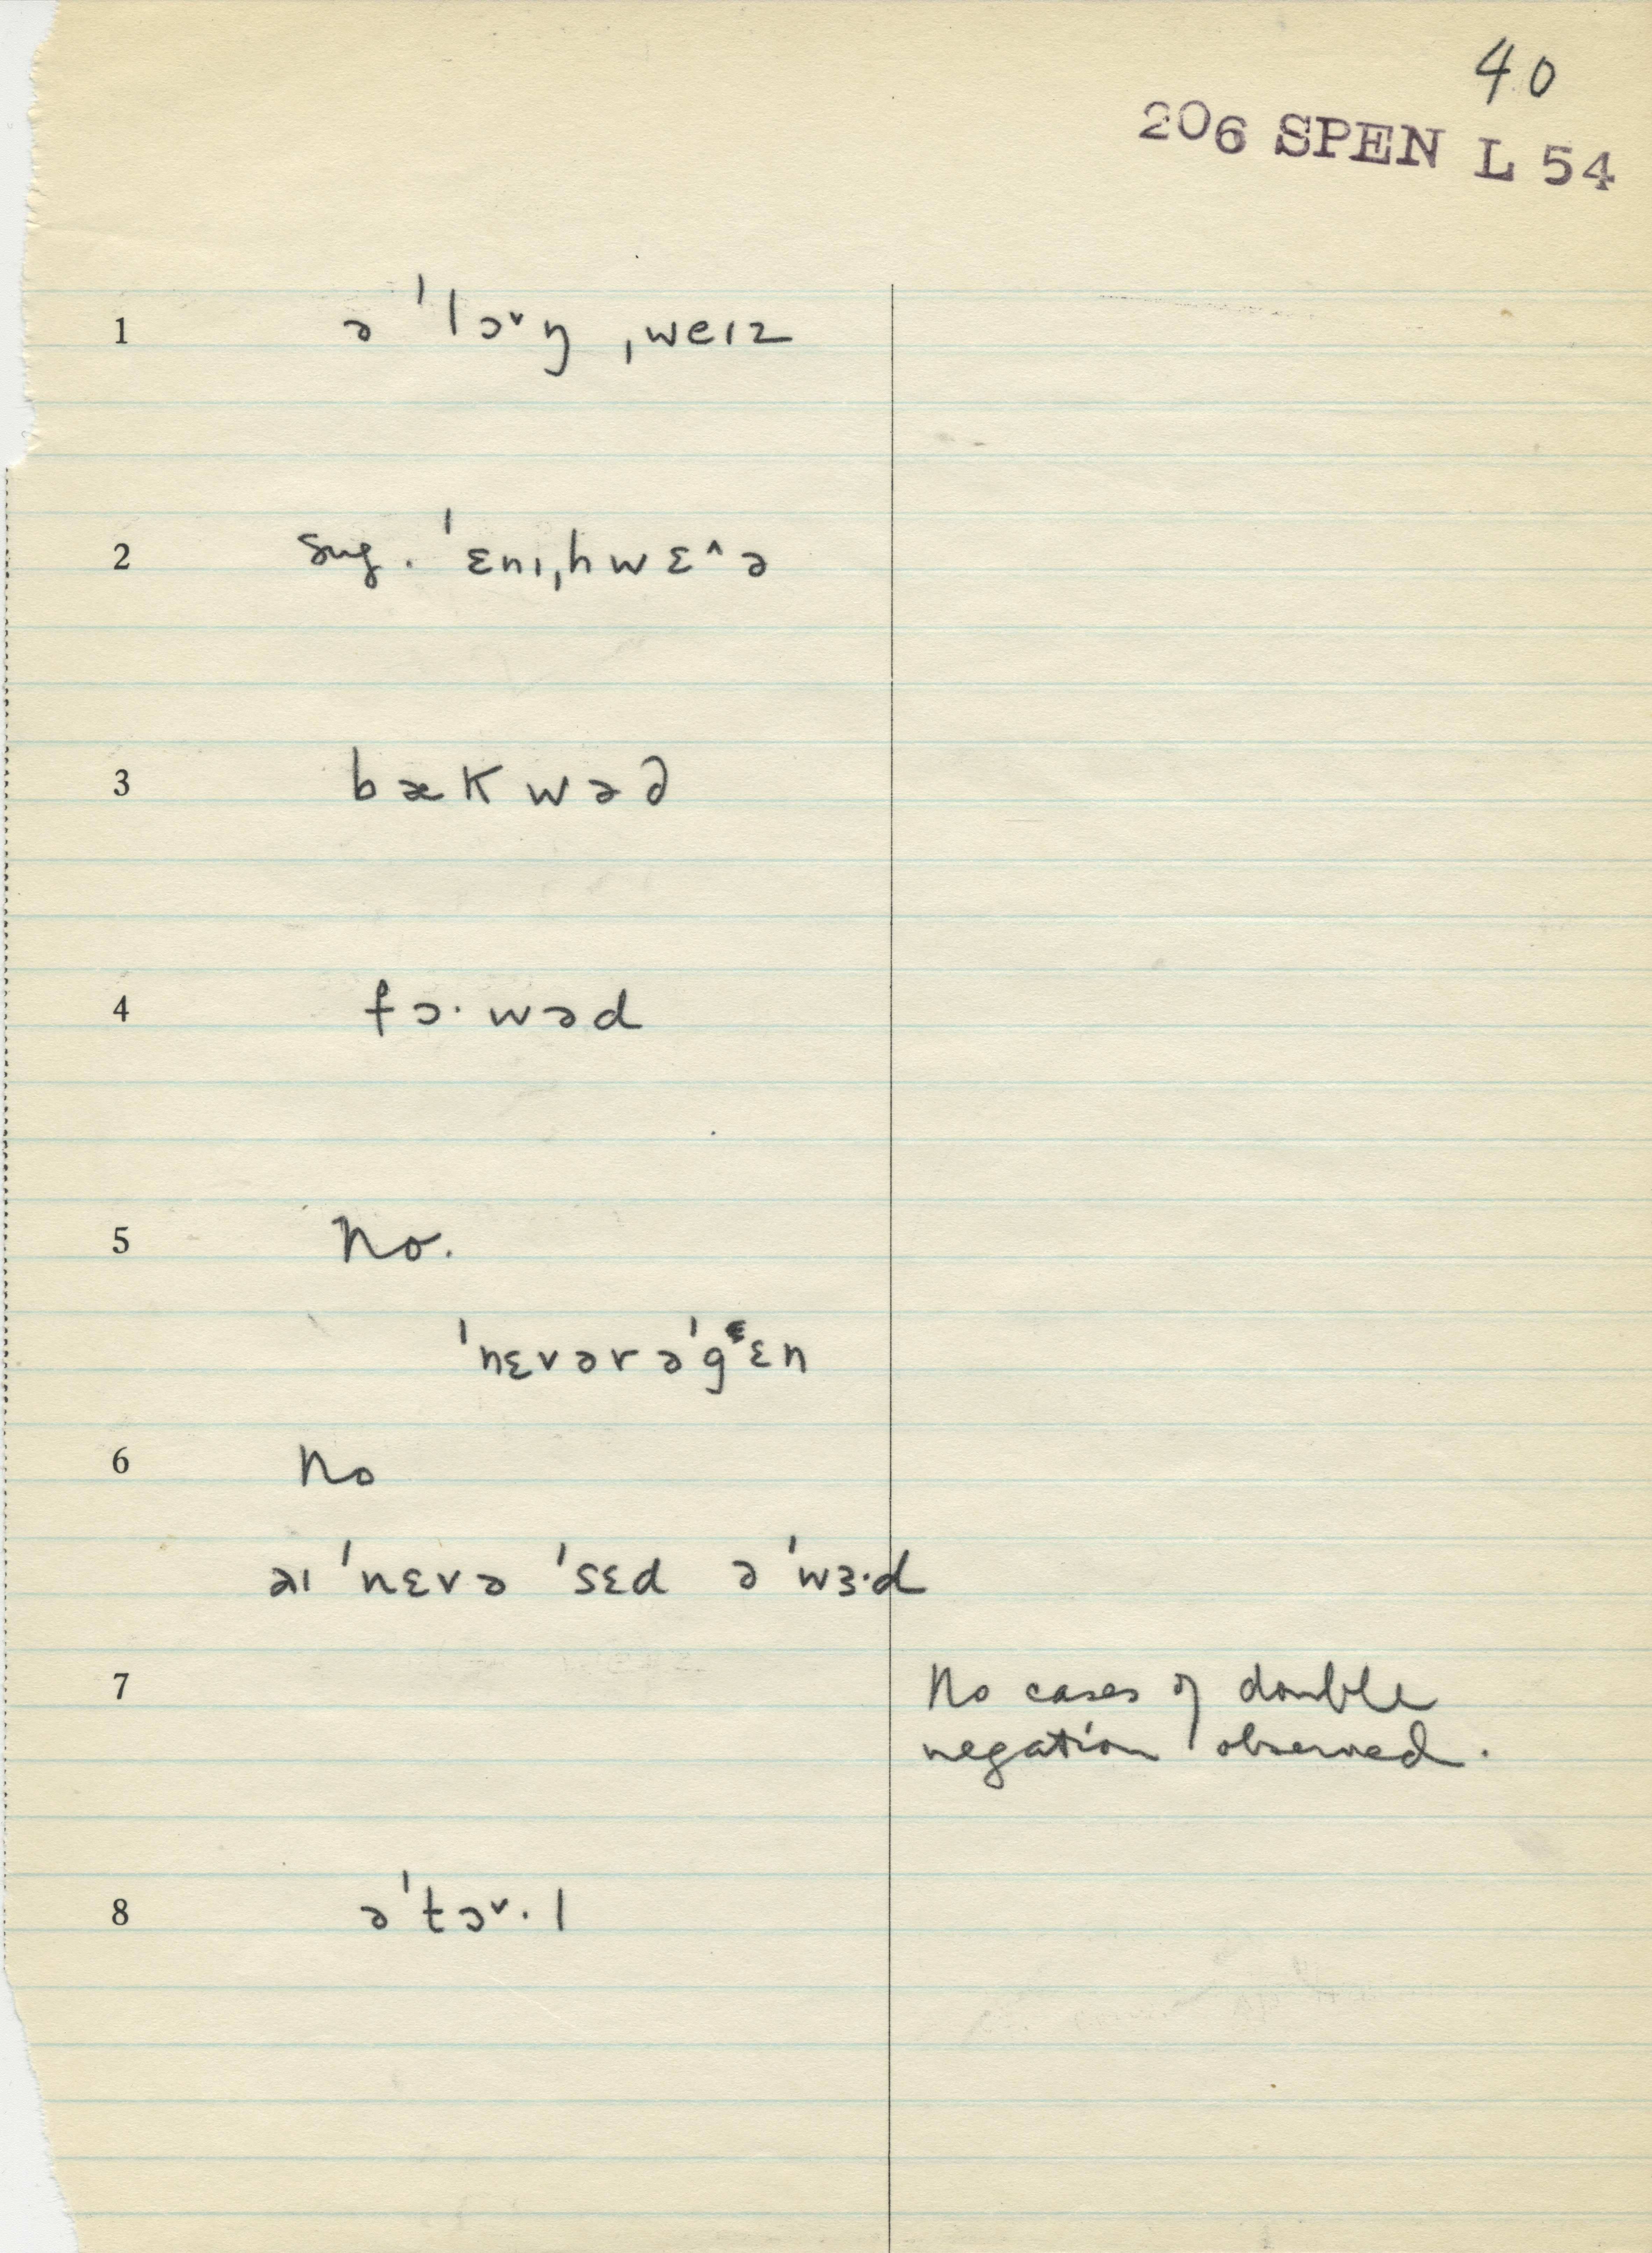 40
206 SPEN L 54
1 ə ˈlɔ˅ŋ ˌweɪz
2 sug. ˈɛnɪˌhwɛ˄ə
3 bækwəd
4 fɔ·wəd
5 No.
ˈnɛvərəˈgᵋɛn
6 No
aɪ ˈnɛvə ˈsɛd əˈwɜ·d
7 No cases of double
negation observed.
8 əˈtɔ˅·l